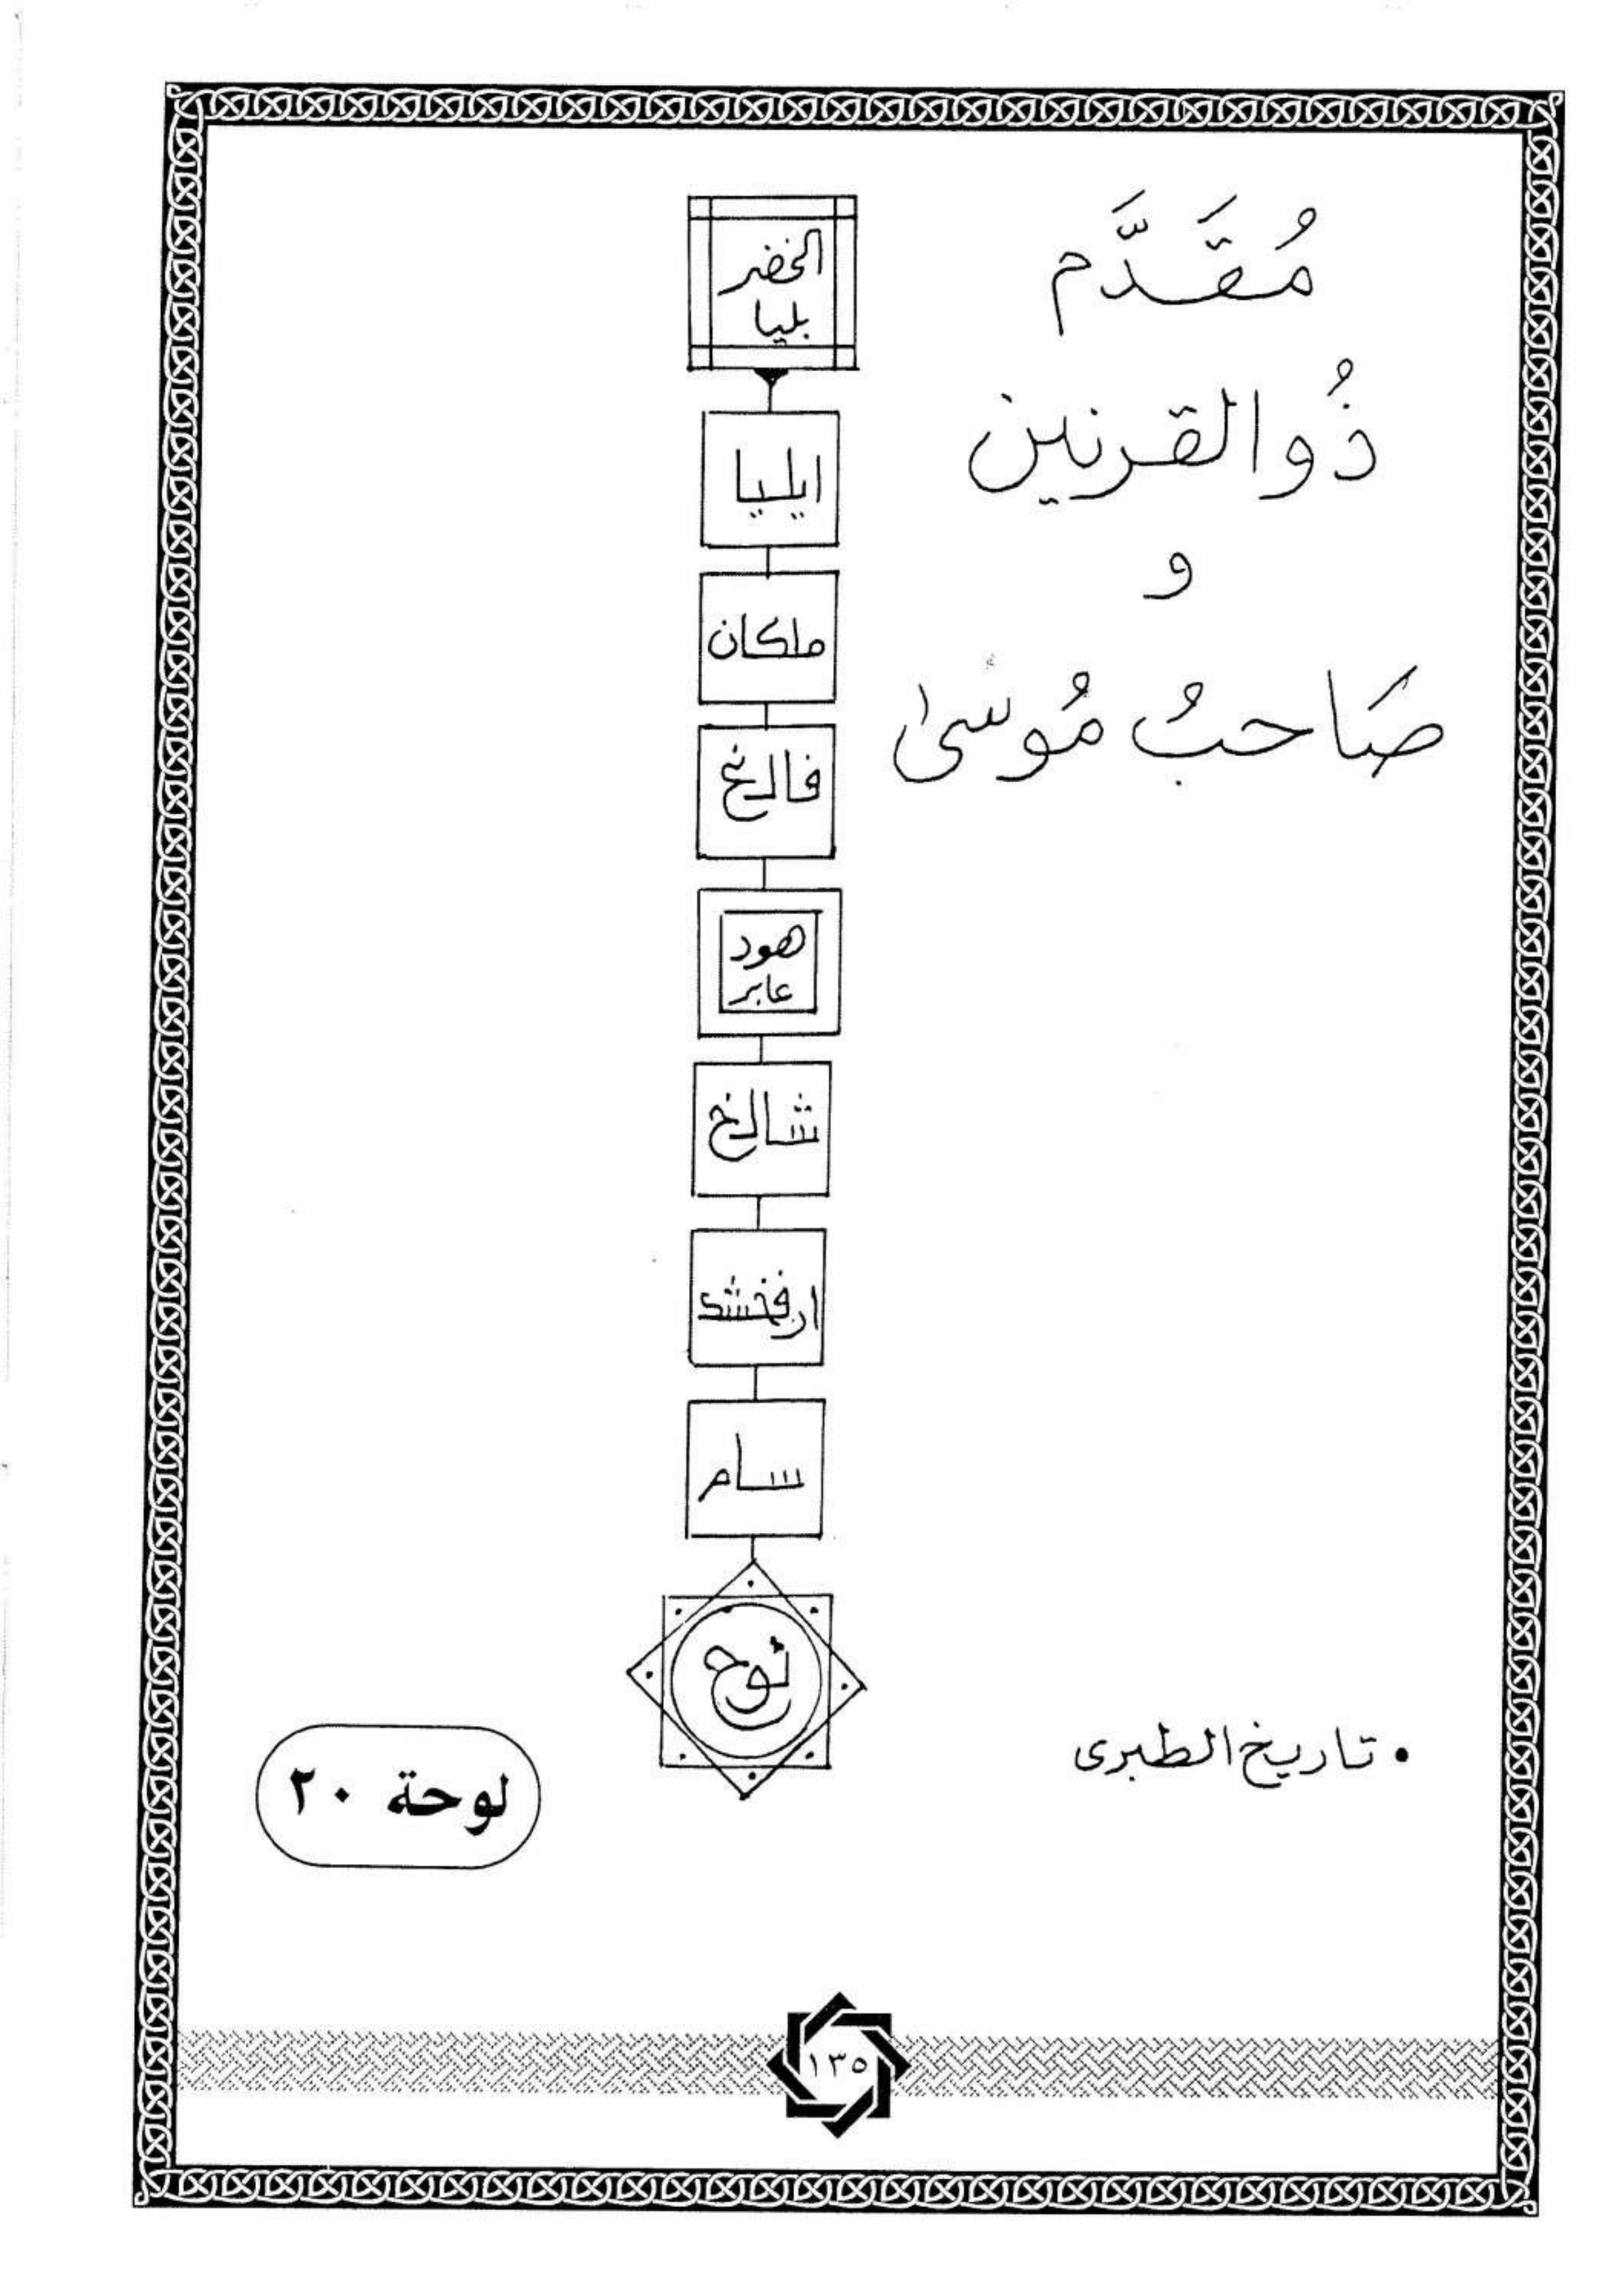 مُقَدَّم
ذُوالقرنين
و
صَاحبُ مُوسىٰ
الخضر
بليا
ايليا
ملكان
فالخ
هود
عابر
شالخ
ارفخشد
سام
نوح
• تاريخ الطبرى
لوحة ٢٠
١٣٥